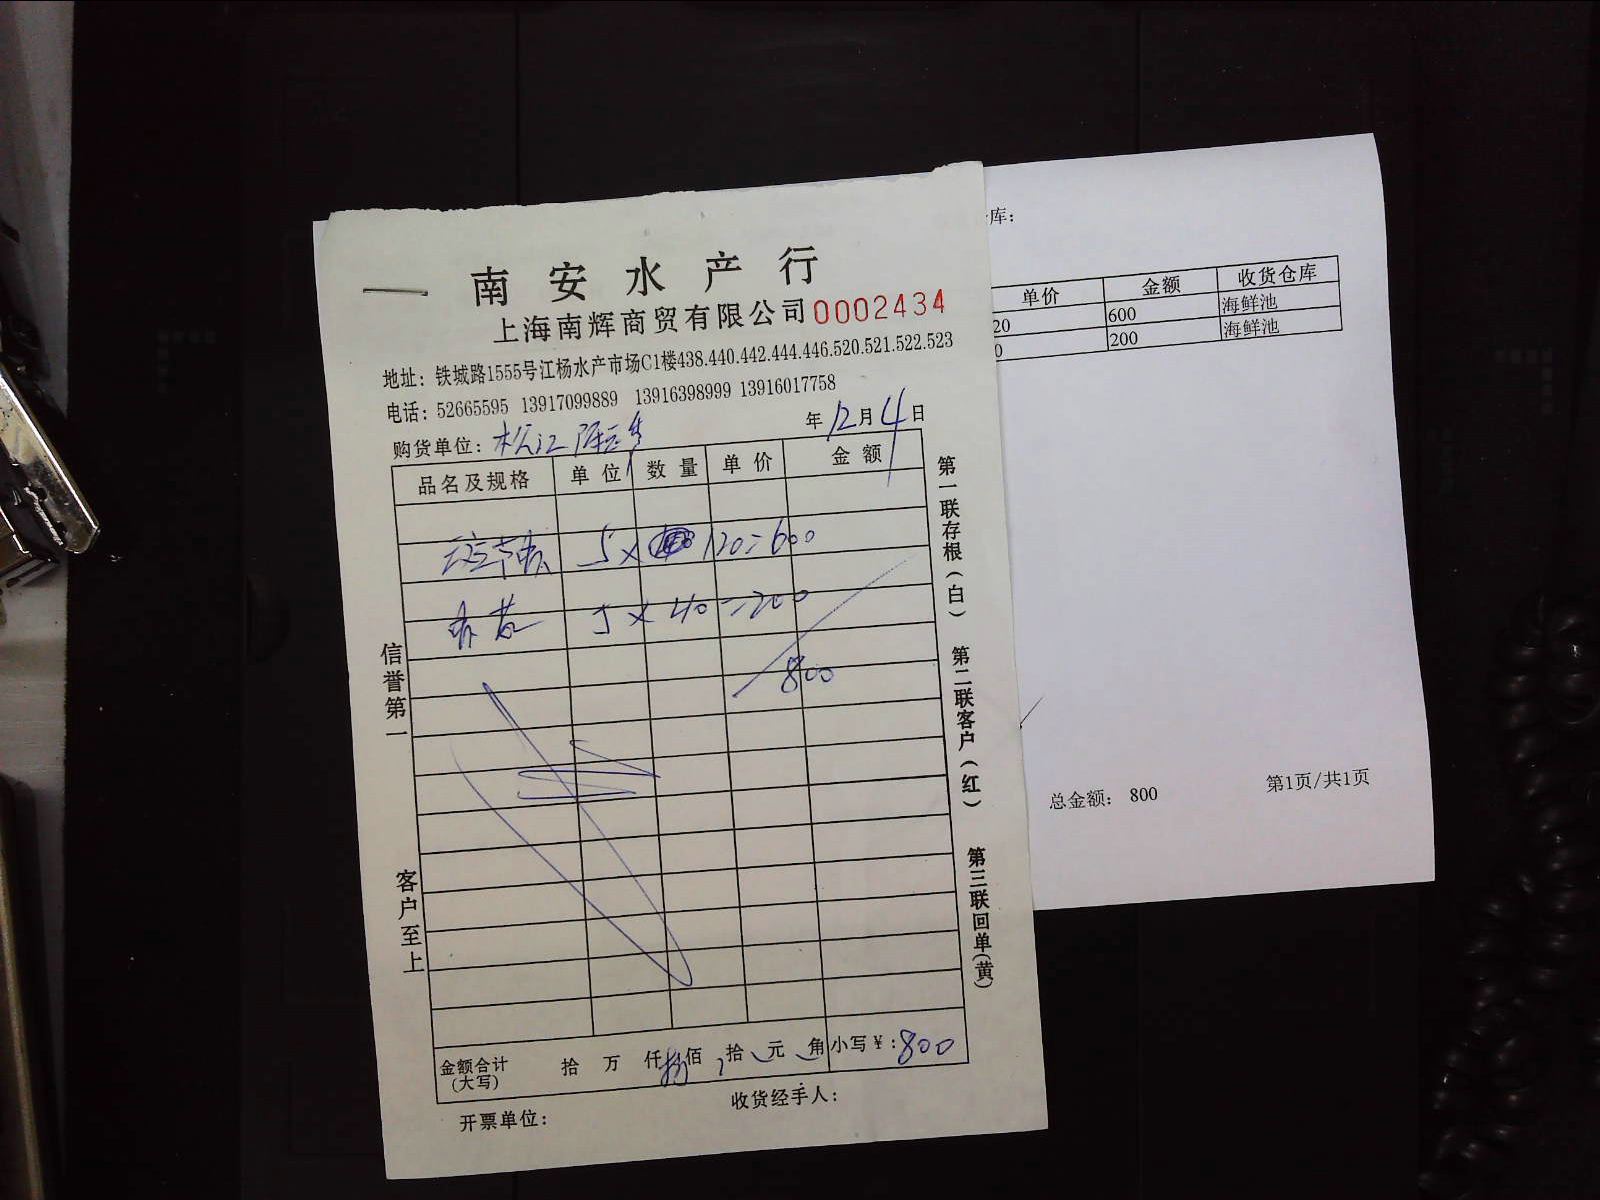 南安水产行
上海南辉商贸有限公司 0002434
地址：铁城路1555号江杨水产市场C1楼438.440.442.444.446.520.521.522.523
电话：52665595 13917099889 13916398999 13916017758
购货单位：松江 年12月4日
品名及规格 单位 数量 单价 金额
5 × 120=600
5 × 40=200
800
金额合计(大写) 拾 万 仟 捌 佰 拾 元 角 小写￥：800
开票单位： 收货经手人：
信誉第一
客户至上
第一联存根(白)
第二联客户(红)
第三联回单(黄)
库：
单价 金额 收货仓库
20 600 海鲜池
0 200 海鲜池
总金额： 800 第1页/共1页